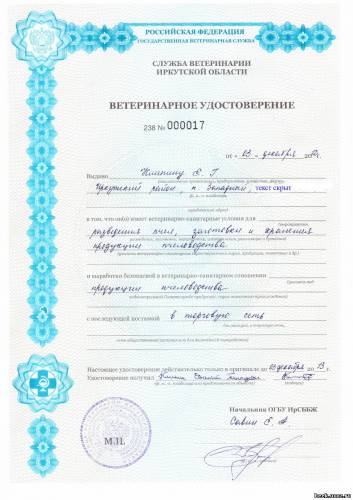 РОССИЙСКАЯ ФЕДЕРАЦИЯ
ГОСУДАРСТВЕННАЯ ВЕТЕРИНАРНАЯ СЛУЖБА
СЛУЖБА ВЕТЕРИНАРИИ
ИРКУТСКОЙ ОБЛАСТИ
ВЕТЕРИНАРНОЕ УДОСТОВЕРЕНИЕ
238 № 000017
от « 03 » декабря
Выдано Е. Г.
Иркутский район, п. текст скрыт
в том, что он(о) имеет ветеринарно-санитарные условия для
разведения пчел, заготовки и хранения
продукции пчеловодства
и выработка безопасной в ветеринарно-санитарном отношении
продукции пчеловодства
с последующей поставкой в торговую сеть
Настоящее удостоверение действительно только в оригинале до 03 декабря 13 г.
Удостоверение получил
Начальник ОГБУ ИрСББЖ
Савин Е. А.
М.П.